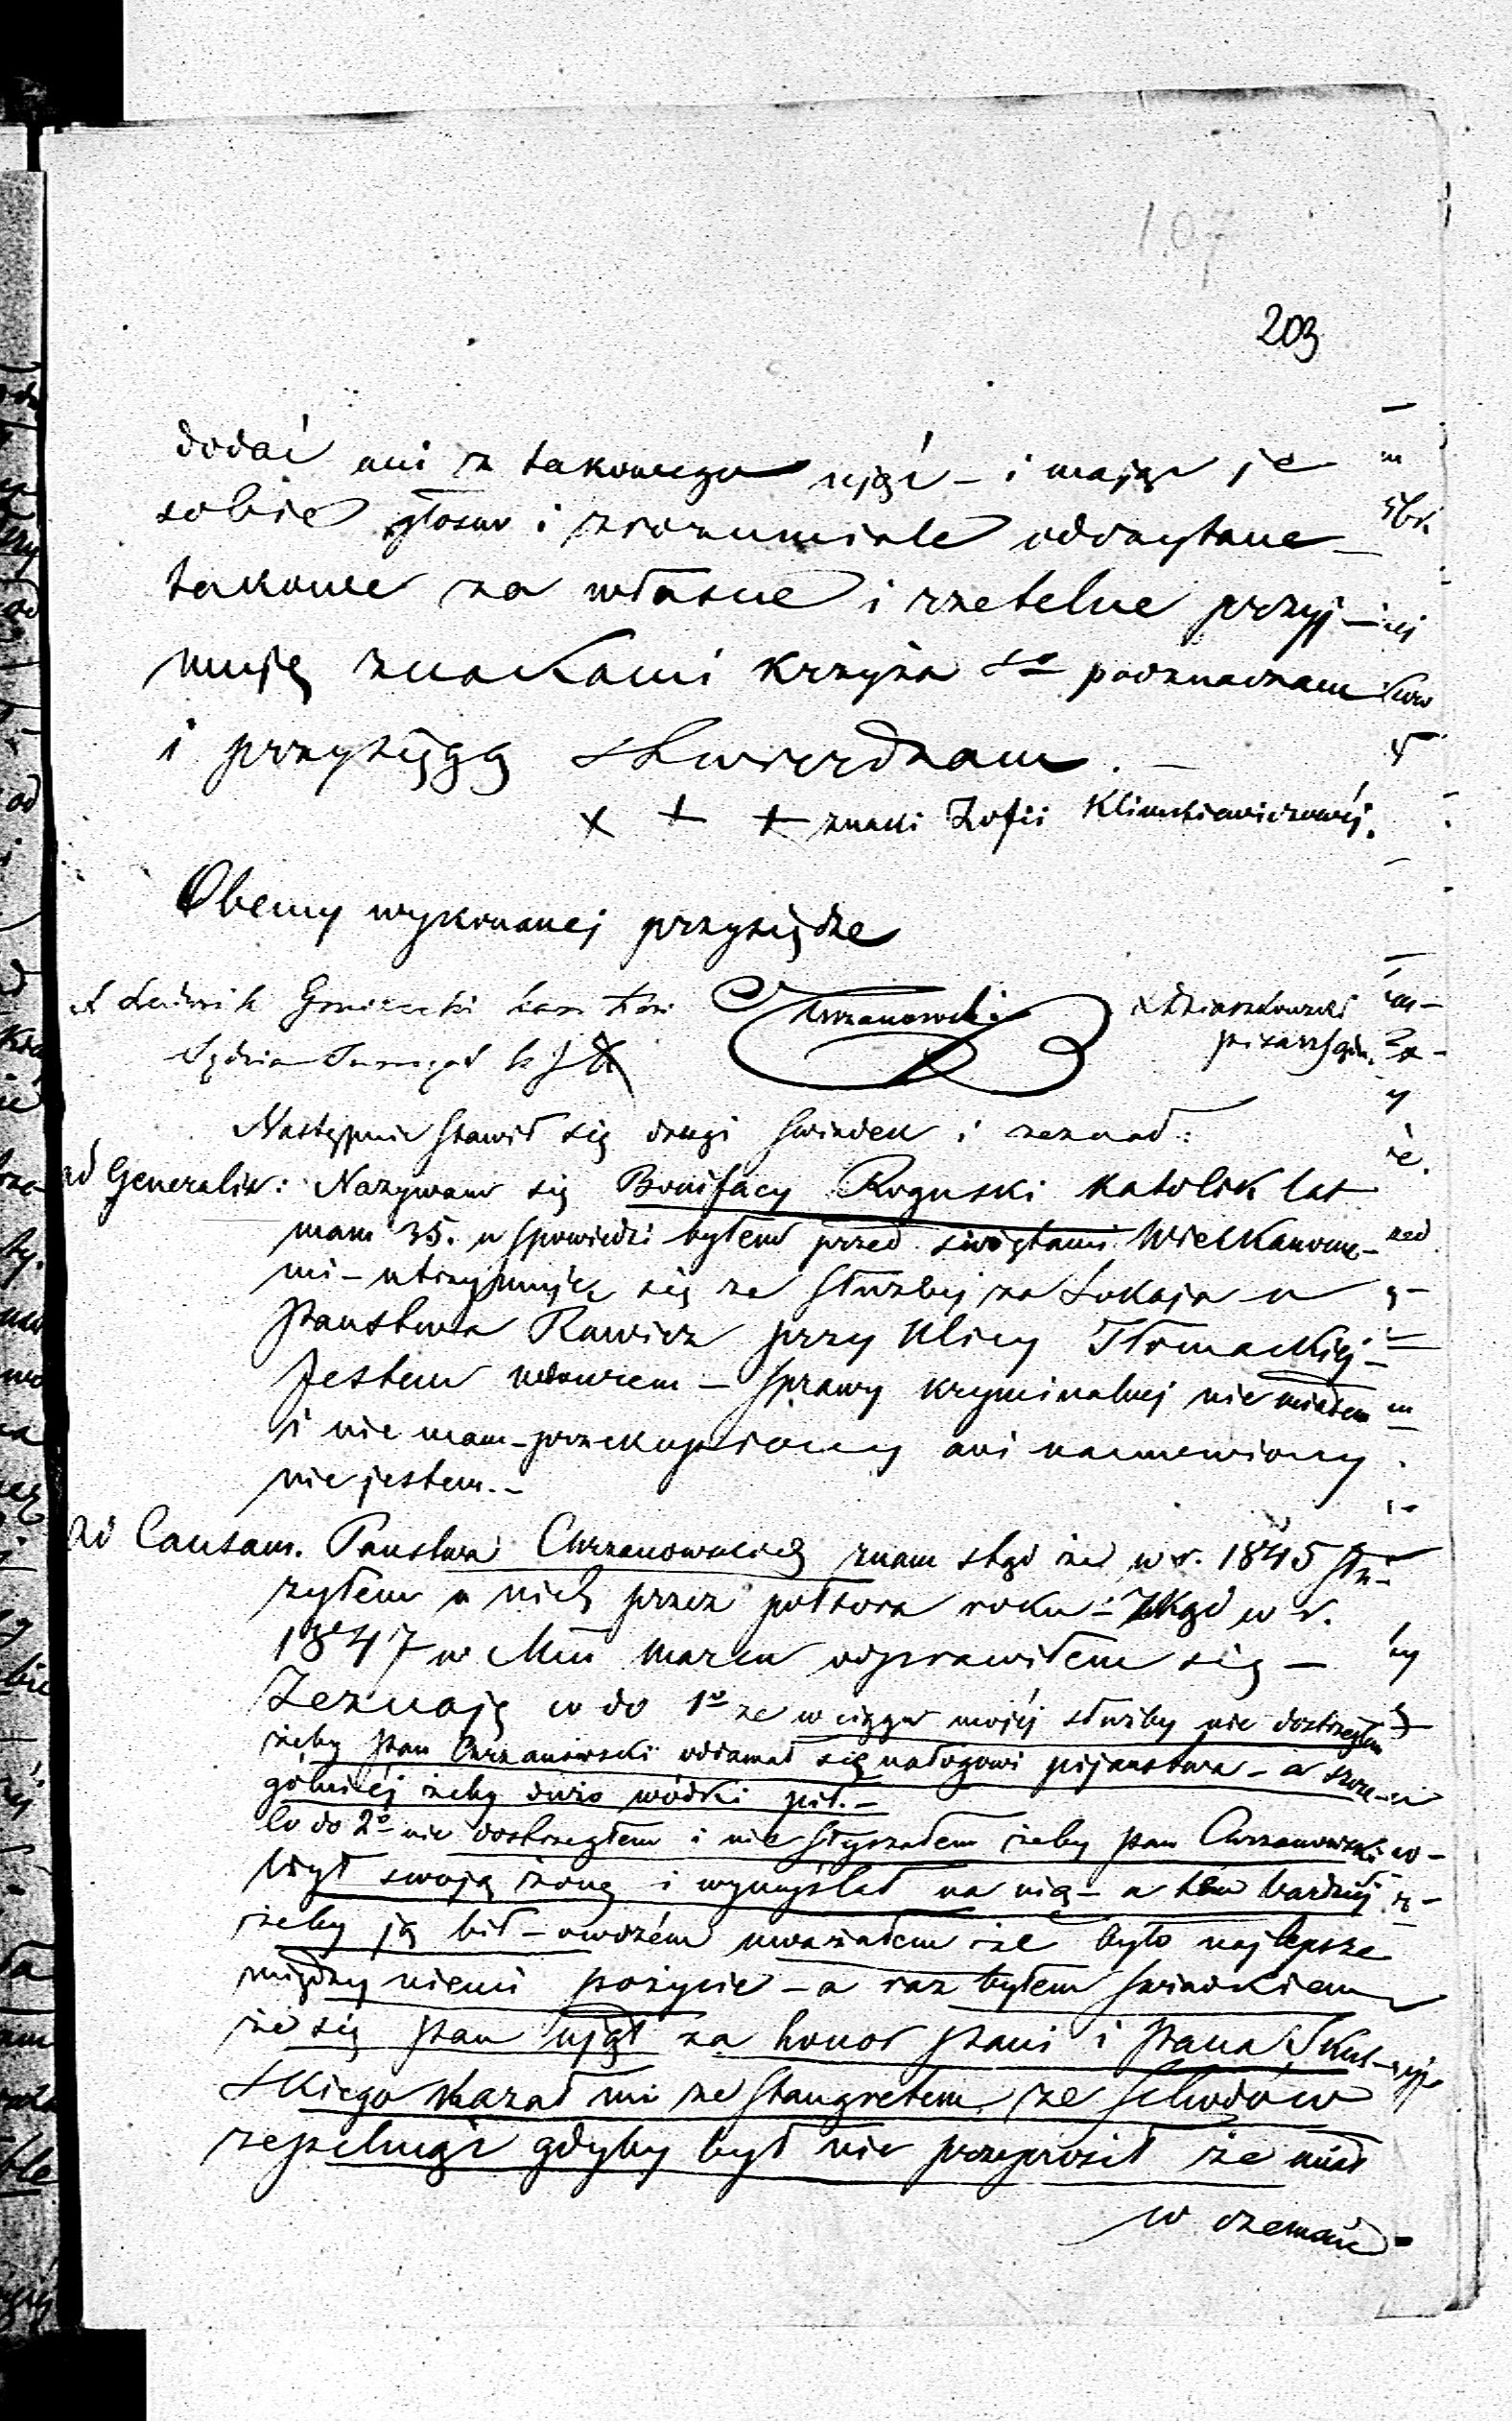 107
203
dodać ani z takowego ująć – i mając je
sobie głosno i zrozumiale odczytane –
takowe za własne i rzetelne przyj–
muję znakami krzyża Sgo podznaczam
i przysięgą stwierdzam. –
x + + znaki Zofii Klimkiewiczowéj.
Obecny wykonanej przysiędze
X Ludwik
Sędzia Surrogat
Chrzanowski
pisarz
Następnie stawił się drugi świadek i zeznał:
ad Generalia: Nazywam się Bonifacy Roguski katolik lat
mam 35. u spowiedzi byłem przed świętami Wielkanocne–
mi – utrzymuję się ze służby za Lokaja u
Państwa Rawicz przy Ulicy Tłomackiéj –
Jestem wdowcem – sprawy kryminalnej nie miałem
i nie mam – przekupiony ani namówiony
nie jestem. –
Ad Causam. Państwa Chrzanowskich znam ztąd że w r. 1845 słu–
żyłem u nich przez półtora roku – zkąd w r.
1847 w Mcu Marcu odprawiłem się –
Zeznaję co do 1o że w ciągu mojéj służby nie dostrzegłem
żeby Pan Chrzanowski oddawał się nałogowi pijaństwa – a szcze–
gólniéj żeby dużo wódki pił. –
Co do 2o nie dostrzegłem i nie słyszałem żeby Pan Chrzanowski
lżył swoją żonę i wymyślał na nią – a tém bardziéj
żeby ją bił – owszém uważałem że było najlepsze
między niemi pożycie – a raz byłem świadkiem
że się Pan ujął za honor Pani i Pana
skiego kazał mi ze Stangretem ze schodów
zepchnąć gdyby był nie przeprosił że miał
w czemsiś